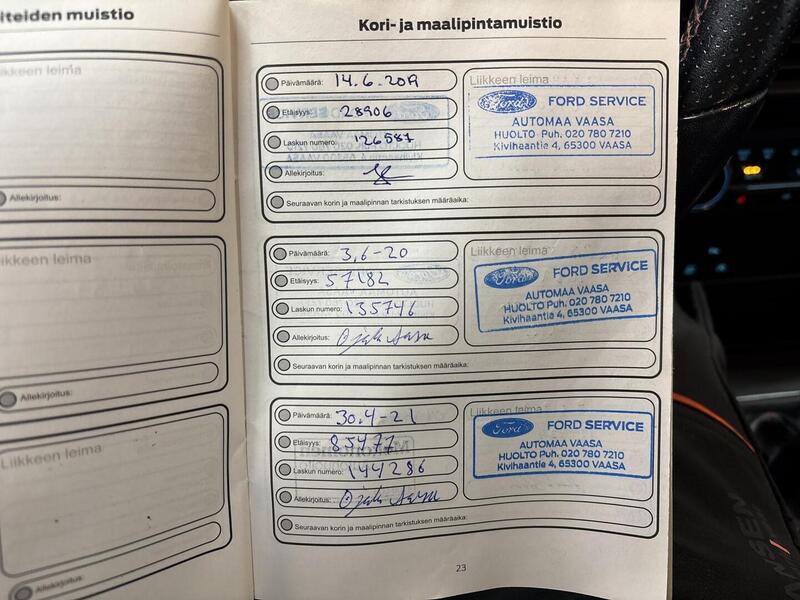 iteiden muistio
ikkeen leima
Allekirjoitus:
ikkeen leima
Allekirjoitus:
Liikkeen leima
Allekirjoitus:
Kori- ja maalipintamuistio
Päivämäärä: 14.6.2019
Etäisyys: 28906
Laskun numero: 126587
Allekirjoitus:
Seuraavan korin ja maalipinnan tarkistuksen määräaika:
Liikkeen leima
Ford FORD SERVICE
AUTOMAA VAASA
HUOLTO Puh. 020 780 7210
Kivihaantie 4, 65300 VAASA
Päivämäärä: 3.6-20
Etäisyys: 57182
Laskun numero: 135746
Allekirjoitus:
Seuraavan korin ja maalipinnan tarkistuksen määräaika:
Liikkeen leima
Ford FORD SERVICE
AUTOMAA VAASA
HUOLTO Puh. 020 780 7210
Kivihaantie 4, 65300 VAASA
Päivämäärä: 30.4-21
Etäisyys: 85477
Laskun numero: 144286
Allekirjoitus:
Seuraavan korin ja maalipinnan tarkistuksen määräaika:
Liikkeen leima
Ford FORD SERVICE
AUTOMAA VAASA
HUOLTO Puh. 020 780 7210
Kivihaantie 4, 65300 VAASA
23